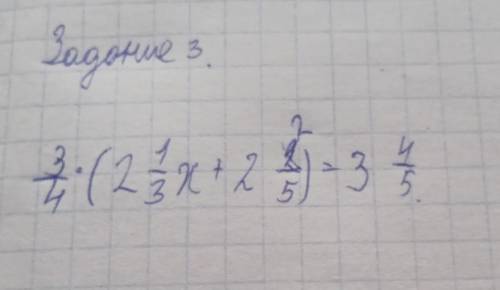 Задание 3.
3/4 · (2 1/3 x + 2 2/5) = 3 4/5.